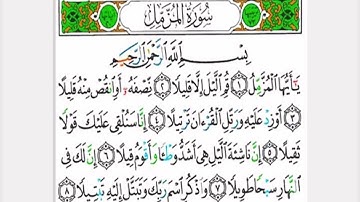 سُورَةُ المُزَّمِّل
بِسْمِ اللَّهِ الرَّحْمَٰنِ الرَّحِيمِ
يَٰٓأَيُّهَا ٱلْمُزَّمِّلُ ١ قُمِ ٱلَّيْلَ إِلَّا قَلِيلًا ٢ نِّصْفَهُۥٓ أَوِ ٱنقُصْ مِنْهُ قَلِيلًا
٣ أَوْ زِدْ عَلَيْهِ وَرَتِّلِ ٱلْقُرْءَانَ تَرْتِيلًا ٤ إِنَّا سَنُلْقِى عَلَيْكَ قَوْلًا
ثَقِيلًا ٥ إِنَّ نَاشِئَةَ ٱلَّيْلِ هِىَ أَشَدُّ وَطْـًٔا وَأَقْوَمُ قِيلًا ٦ إِنَّ لَكَ فِى
ٱلنَّهَارِ سَبْحًا طَوِيلًا ٧ وَٱذْكُرِ ٱسْمَ رَبِّكَ وَتَبَتَّلْ إِلَيْهِ تَبْتِيلًا ٨